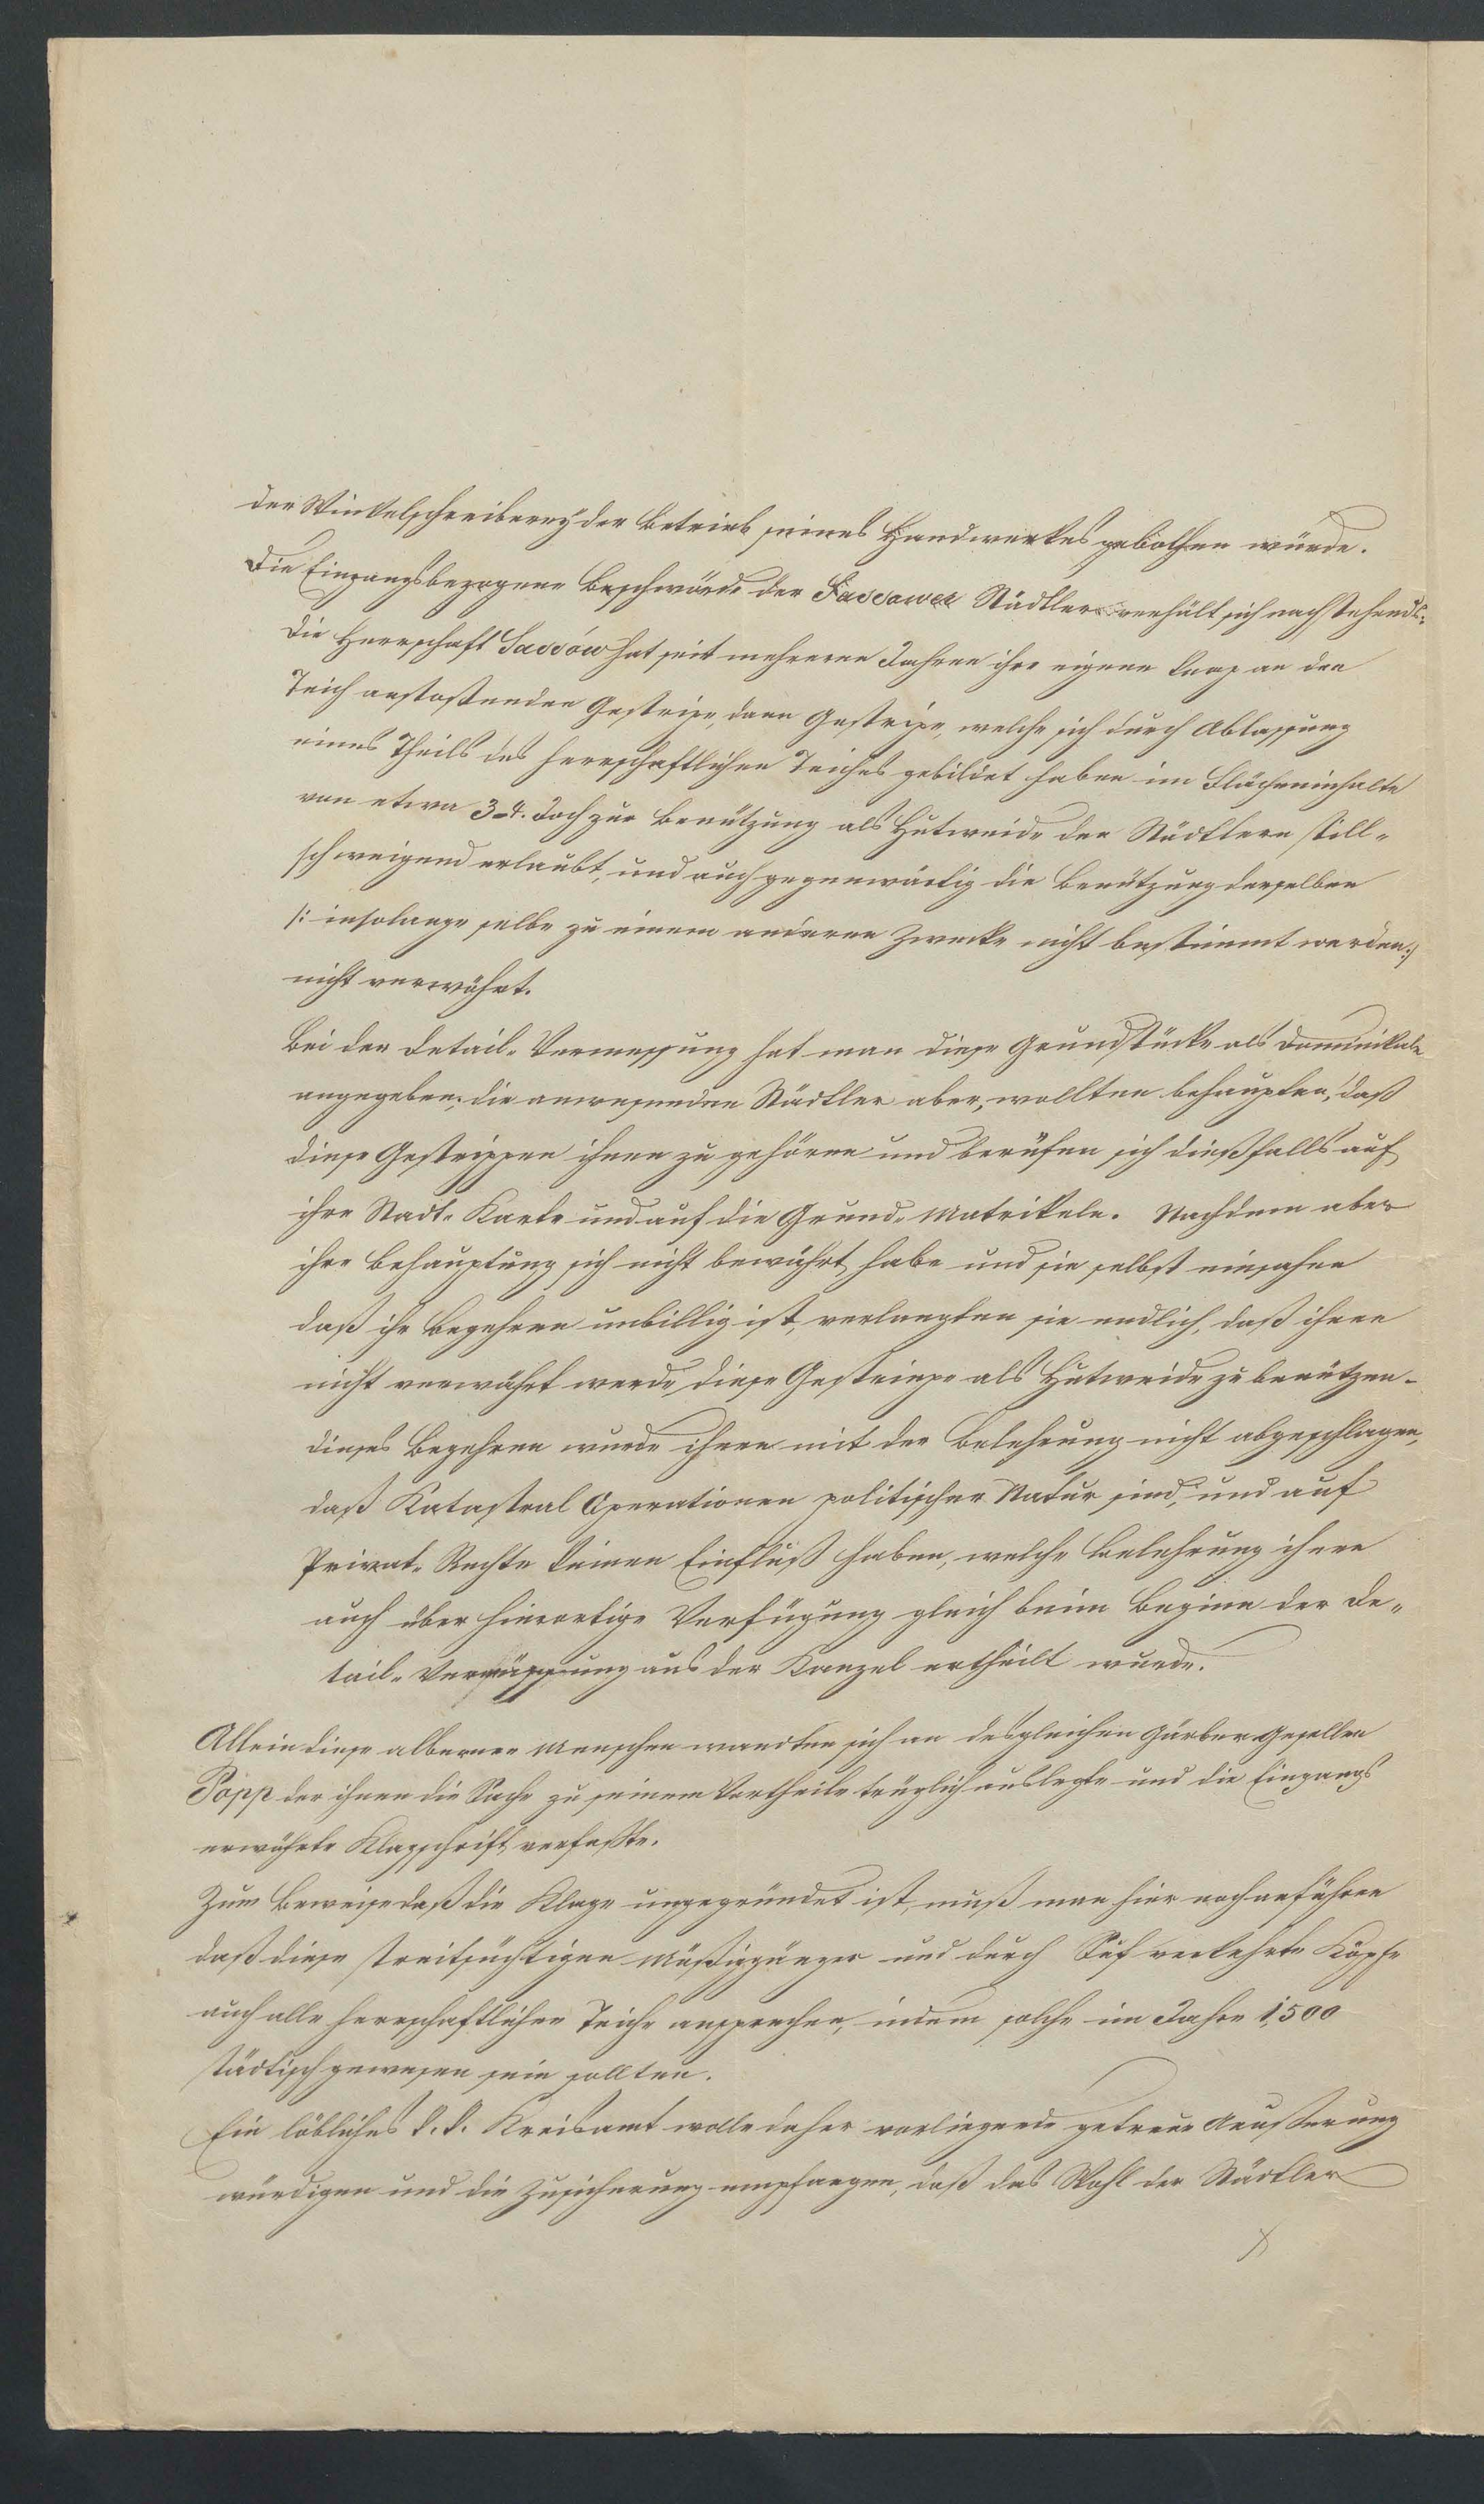 der Winkelschreiberey der Betrieb seines Handwerkes gebothen würde.
Die Eingangsbezogene Beschwörde der Sassower Städtler verhält sich nachstehends:
Die Herrschaft Sassów hat seit mehreren Jahren ihre eigenen knap an den
Teich anstoßenden Gestripe, dann Gestripe, welche sich durch Ablassung
eines Theils des herrschaftlichen Teiches gebildet haben im Flächeninhalte
von etwa 3-4. Joch zur Benützung als Hutweide den Städtlern still-
schweigend erlaubt, und auch gegenwärtig die Benützung derselben
/: insolange selbe zu einem anderen Zwecke nicht bestimmt werden :/
nicht verwährt.
Bei der Detail-Vermessung hat man diese Grundstücke als Dominikale
angegeben, die anwesenden Städtler aber, wollten behaupten, daß
diese Gestrippen ihnen zu gehören und berufen sich dießfalls auf
ihre Stadt-Karte und auf die Grund-Matrikeln. Nachdem aber
ihre Behauptung sich nicht bewährt habe und sie selbst einsahen
daß ihr Begehren unbillig ist, verlangten sie endlich, daß ihnen
nicht verwährt werde, diese Gestripe als Hutweide zu benützen-
dieses Begehren wurde ihnen mit der Belehrung nicht abgeschlagen,
daß Katastral Operationen politischer Natur sind, und auf
Privat-Rechte keinen Einfluß haben, welche Belehrung ihnen
auch über hierortige Verfügung gleich beim Beginn der De-
tail-Vermessung aus der Kanzel ertheilt wurde.
Allein diese albernen Menschen wandten sich an desgleichen Gärber Gesellen
Popp der ihnen die Sache zu seinem Vortheile trüglich auslegte und die Eingangs
erwähnte Klagschrift verfaßte.
Zum Beweise daß die Klage ungegründet ist, muß man hier noch anführen
daß diese streitsüchtigen Müßiggänger und durch Suf verkehrte Köpfe
auch alle herrschaftlichen Teiche ansprechen, indem solche im Jahre 1,500
städtisch gewesen sein sollten.
Ein löbliches k. k. Kreisamt wolle daher vorliegende getreue Aeußerung
würdigen und die Zusicherung empfangen, daß das Wohl der Städtler